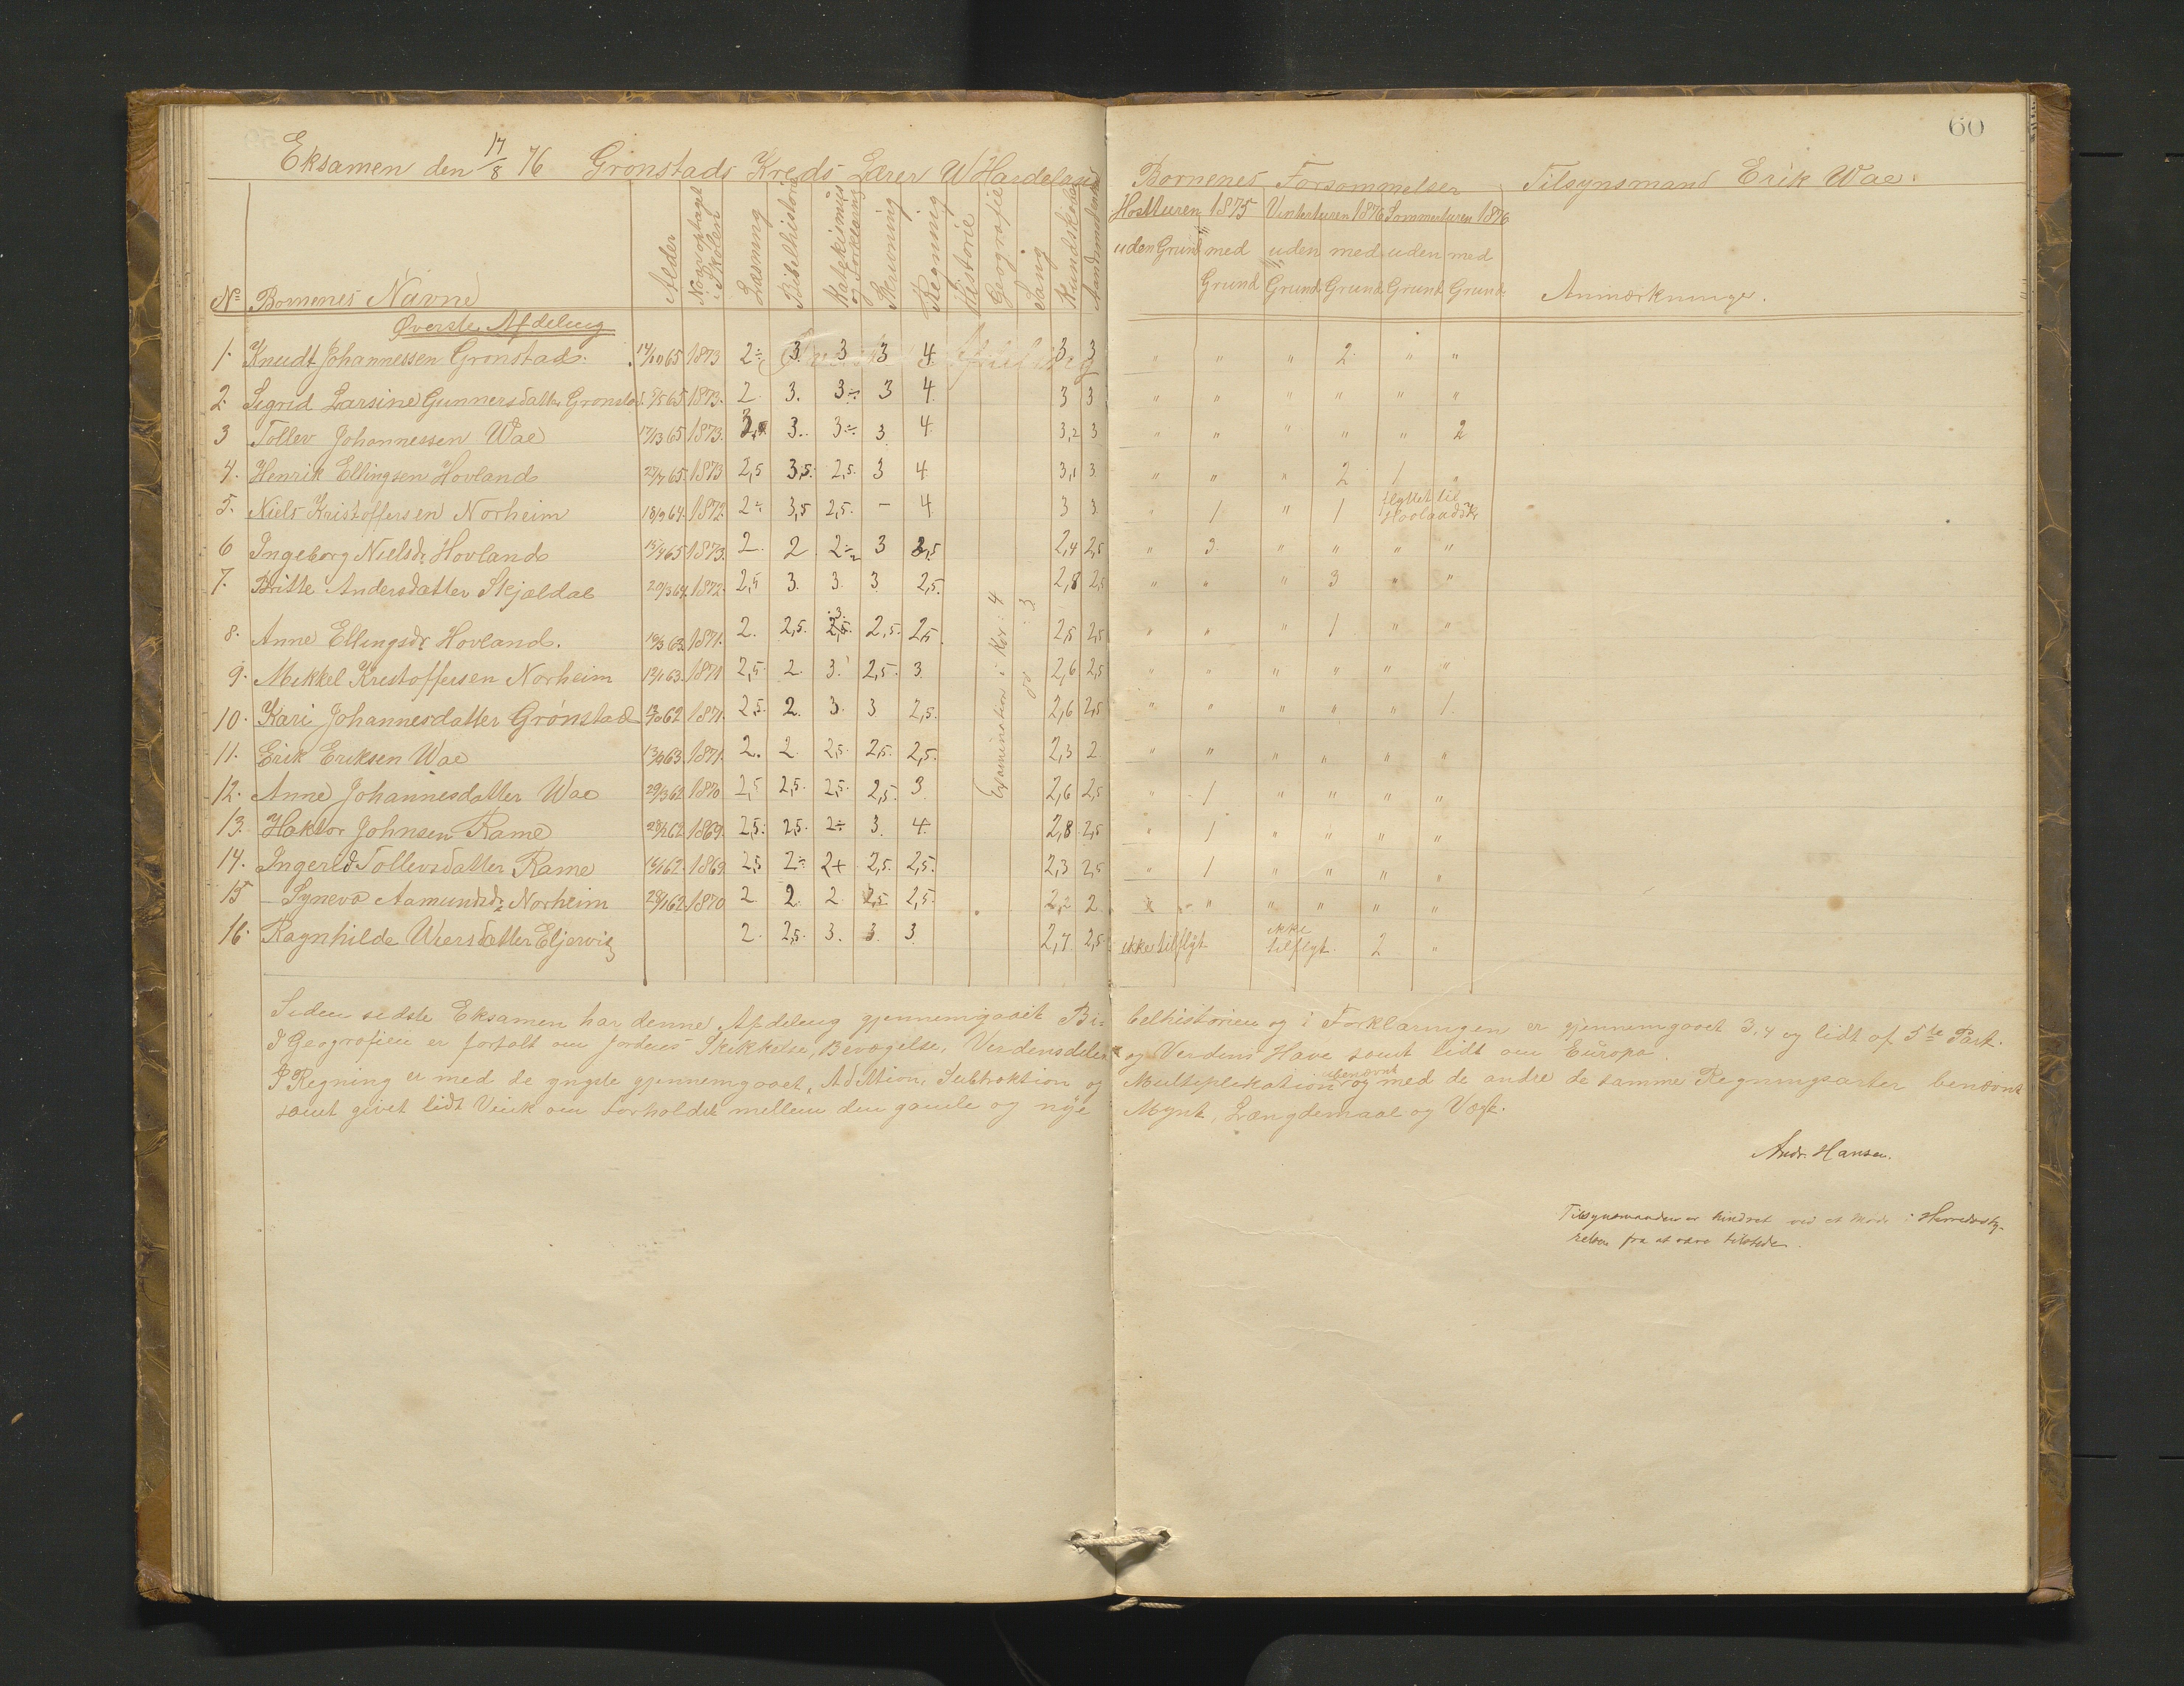 60
Eksamen den 17/8 76 Gronstads Kreds Lærer W Hardeland
Børnenes Forsømmelser Tilsynsmand Erik Wae.
Høstturen 1875 Vinterturen 1876 Sommerturen 1876
uden Grund med Grund uden Grund med Grund uden Grund med Grund
Anmærkninger.
No Bornenes Navne Alder Naar optaget i Skolen Læsning Bibelhistorie Katekismus og Forklaring Skrivning Regning Historie Geografie Sang Kundskaber
Øverste Afdeling
1. Knudt Johannessen Gronstad. 1873 2÷ 3. 3 3 4 3 3 " " " 2 " "
2. Sigrid Larsine Gunnersdatter 1873. 2 3. 3÷ 3 4 3 3 " " " " " "
3 Tollev Johannessen Wae 1873. 3. 3÷ 3 4 3,2 3 " " " " " 2
4. Henrik Ellingsen Hovland 1873 2,5 3,5. 2,5. 3 4 3,1 3 " " " 2 1 "
5. Niels Kristoffersen Norheim 18/9 64. 1872. 2÷ 3,5 2,5. – 4 3 3 " 1 " 1 flyttet til
6 Ingeborg Nielsdr. Hovland 1873. 2. 2 2÷ 3 2,4 2,5 " 3 " " " "
7. Britte Andersdatter Skjældal 1872. 2,5 3. 3. 3. 2,5. 2,8 2,5 " " " 3 " "
8. Anne Ellingsdr Hovland. 1871. 2. 2,5. 3. 2,5. 2,5. 2,5 2,5 " " " 1 " "
9. Mikkel Kristoffersen Norheim 1871 2,5. 2. 3. 2,5. 3. 2,6 2,5 " " " " " "
10. Kari Johannesdatter Grønstad 1871. 2,5. 2. 3. 3 2,5. 2,6 2,5 " " " " " 1.
11. Erik Eriksen Wae 1871. 2. 2. 2,5. 2,5. 2,5. 2,3 2 " " " " " "
12. Anne Johannesdatter Wae 29/3 62 1870 2,5 2,5. 2,5. 2,5. 3. 2,6 2,5 " 1 " " " "
13. Haktor Johnsen Rame 1869. 2,5. 2,5. 2÷ 3. 4. 2,8 2,5 " 1 " " " "
14. Ingerid Tollevsdatter Rame 1869. 2,5 2÷ 2+ 2,5. 2,5. 2,3 2,5 " 1 " " " "
15 Synevo Aamundsdr. Norheim 1870 2 2. 2. 2,5 2,5. 2,2 2 " " " " " "
16. Ragnhilde 2. 2,5. 3. 3. 3. 2,7 2,5 ikke tilflyt. ikke tilflyt. 2 "
Examination i Kor: 4
do : 3
Siden sidste Eksamen har denne Afdeling gjennemgaaet Bi- belhistorien og i Forklaringen er gjennemgaaet 3, 4 og lidt af 5te Part.
I Geografien er fortalt om Jordens Skikkelse, Bevægelse, Verdensdele og Verdens Have samt lidt om Europa.
I Regning er med de yngste gjennemgaaet Adition, Subtraktion og Multiplikation ubenævnt og med de andre de samme Regningsarter benævnt
samt givet lidt Vink om Forholdet mellem den gamle og nye Mynt, Længdemaal og Vægt.
Andr. Hansen.
Tilsynsmanden er hindret ved et Møde i Herredssty-
relsen fra at være tilstede.